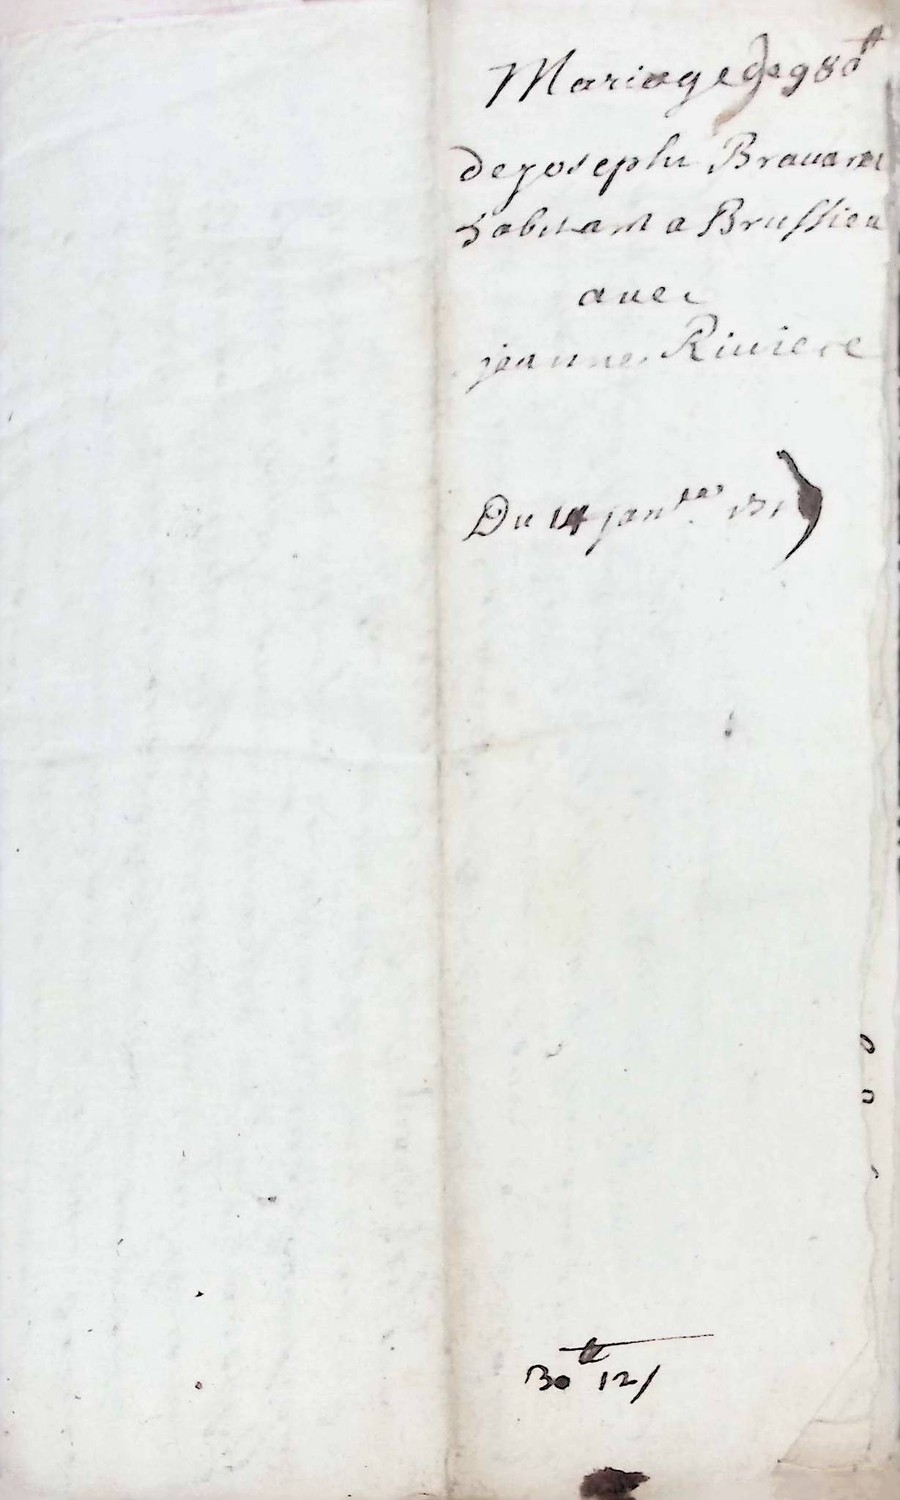 Mariage de 980tt
de joseph Brauard
habitant a Brussieu
auec
jeanne Riuiere
Du 14 januier
30tt 12/